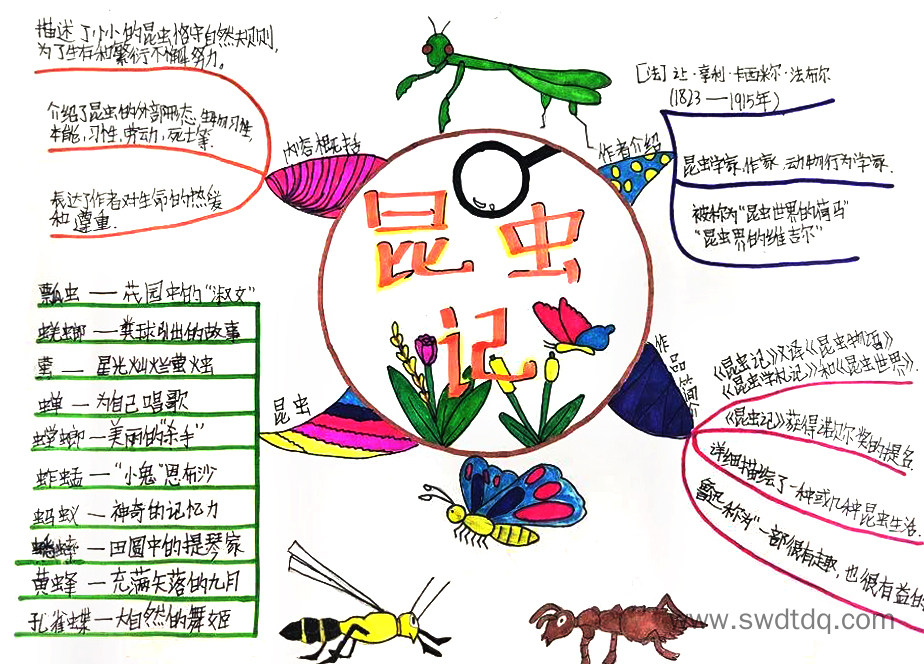 描述了小小的昆虫恪守自然规则,
为了生存和繁衍不懈努力。
介绍了昆虫的外部形态,生物习性,
本能,习性,劳动,死亡等.
表达了作者对生命的热爱
和尊重.
内容概括
昆虫记
作者介绍
[法]让·亨利·卡西米尔·法布尔
(1823——1915年)
昆虫学家,作家,动物行为学家.
被称为"昆虫世界的荷马"
"昆虫界的维吉尔"
昆虫
瓢虫——花园中的"淑女"
蜣螂——粪球引出的故事
萤——星光灿烂萤火虫
蝉——为自己唱歌
螳螂——美丽的"杀手"
蚱蜢——"小鬼"恩布沙
蚂蚁——神奇的记忆力
蟋蟀——田园中的提琴家
黄蜂——充满失落的九月
孔雀蝶——大自然的舞姬
作品简介
《昆虫记》又译《昆虫物语》
《昆虫学札记》和《昆虫世界》.
《昆虫记》获得诺贝尔奖的提名
详细描绘了一种或几种昆虫生活.
鲁迅——称为"一部很有趣,也很有益的
www.swdtdq.com